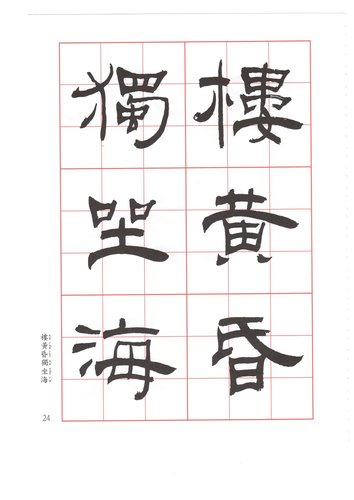 樓黃昏
獨坐海
樓黃昏獨坐海
24